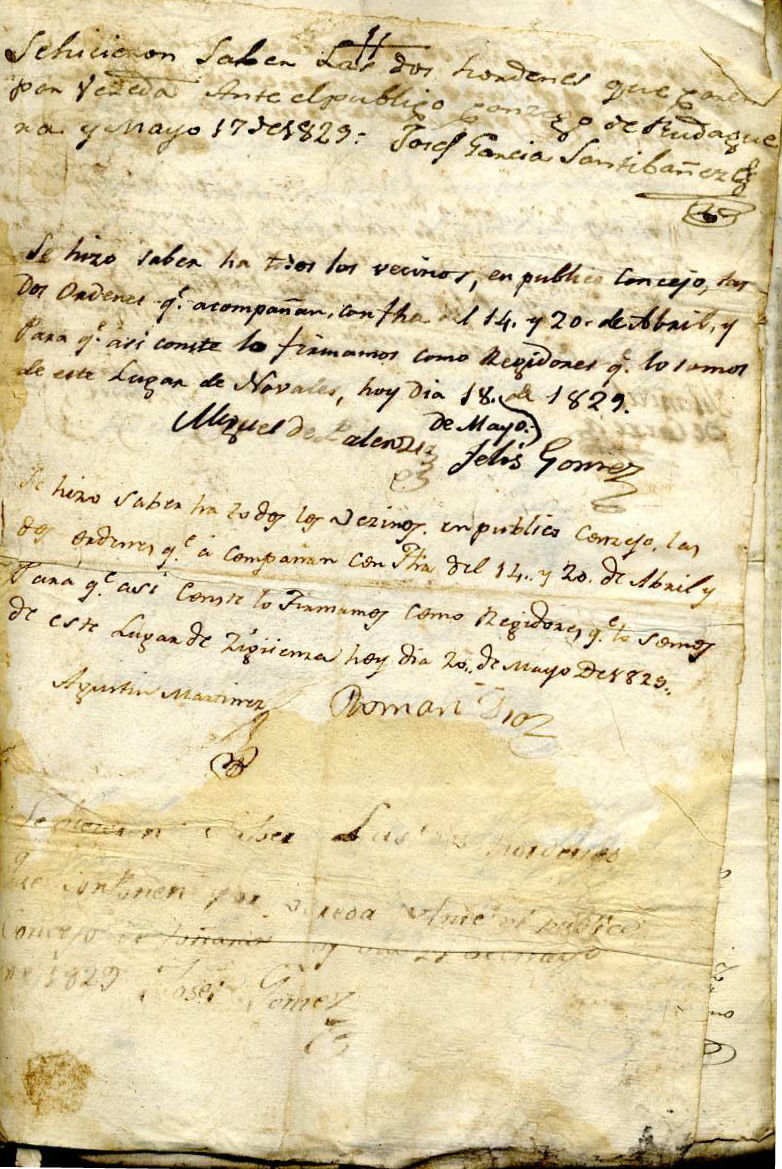 Sehicieron Saber Las dos hordenes que
por Vereda Ante el publico conzejo de Rudague
ra y Mayo 17 de 1829: Josef Garcia Santibañez
Se hizo saber ha todos los vecinos, en publico Concejo, las
Dos Ordenes q.e acompañan, con fha del 14. y 20. de Abril, y
Para q.e asi conste lo firmamos como Regidores q.e lo somos
de este Lugar de Novales, hoy dia 18. de 1829.
de Mayo.
Miguel de Palenzia Felis Gomez
Se hizo saber ha todos los Vezinos. en publico Conzejo, las
dos ordenes q.e acompañan con Fha del 14. y 20. de Abril y
Para q.e asi Conste lo Firmamos como Regidores q.e lo somos
de este Lugar de Zigüenza hoy dia 20. de Mayo De 1829.
Agustin Martinez Roman Dioz
Se hicieron Saber Las hordenes
que Contienen por Vereda Ante el publico
Concejo de dia 21 de Mayo
1829 Josef Gomez